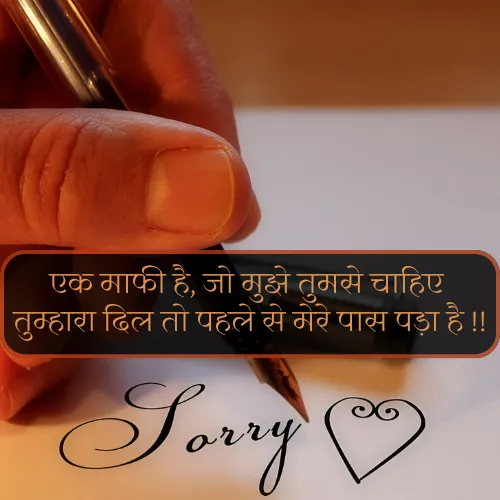 एक माफी है, जो मुझे तुमसे चाहिए
तुम्हारा दिल तो पहले से मेरे पास पड़ा है !!
Sorry